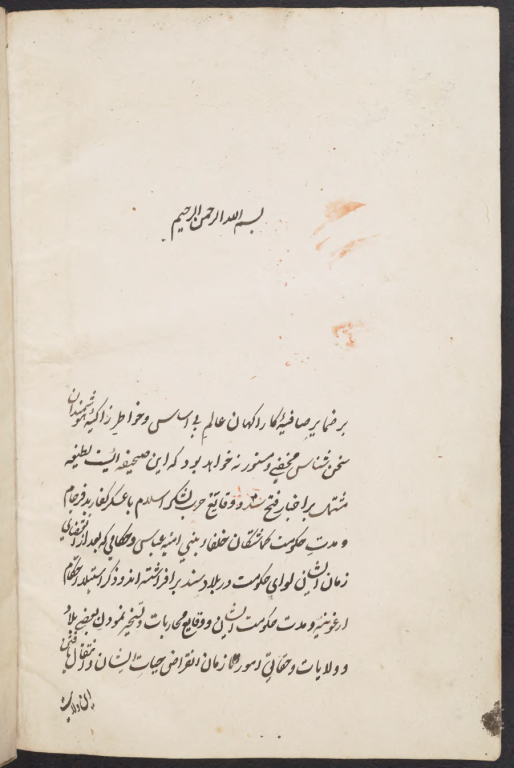 بسم الله الرحمن الرحیم
بر ضمایر صافیهٔ کار اکهان عالم بی اساس و خواطر زاکیهٔ هوشمندان
سخن شناس مخفی و مستور نه خواهد بود که این صحیفه ایست لطیفه
مشتهر بر اخبار فتح سند و وقایع حرب لشکر اسلام با عسکر کفار بد فرجام
و مدت حکومت کماشتگان خلفاء بنی امیه و عباسی و حکامی که بعد از انقضای
زمان ایشان لوای حکومت در بلاد سند بر افراشته اند و ذکر استیلا حکام
ارغونیه و مدت حکومت ایشان و وقایع محاربات و تسخیر نمودن بعضی بلاد
و ولایات و حقایق امور تا زمان انقراض حیات ایشان و انتقال یافتن
این ولایت